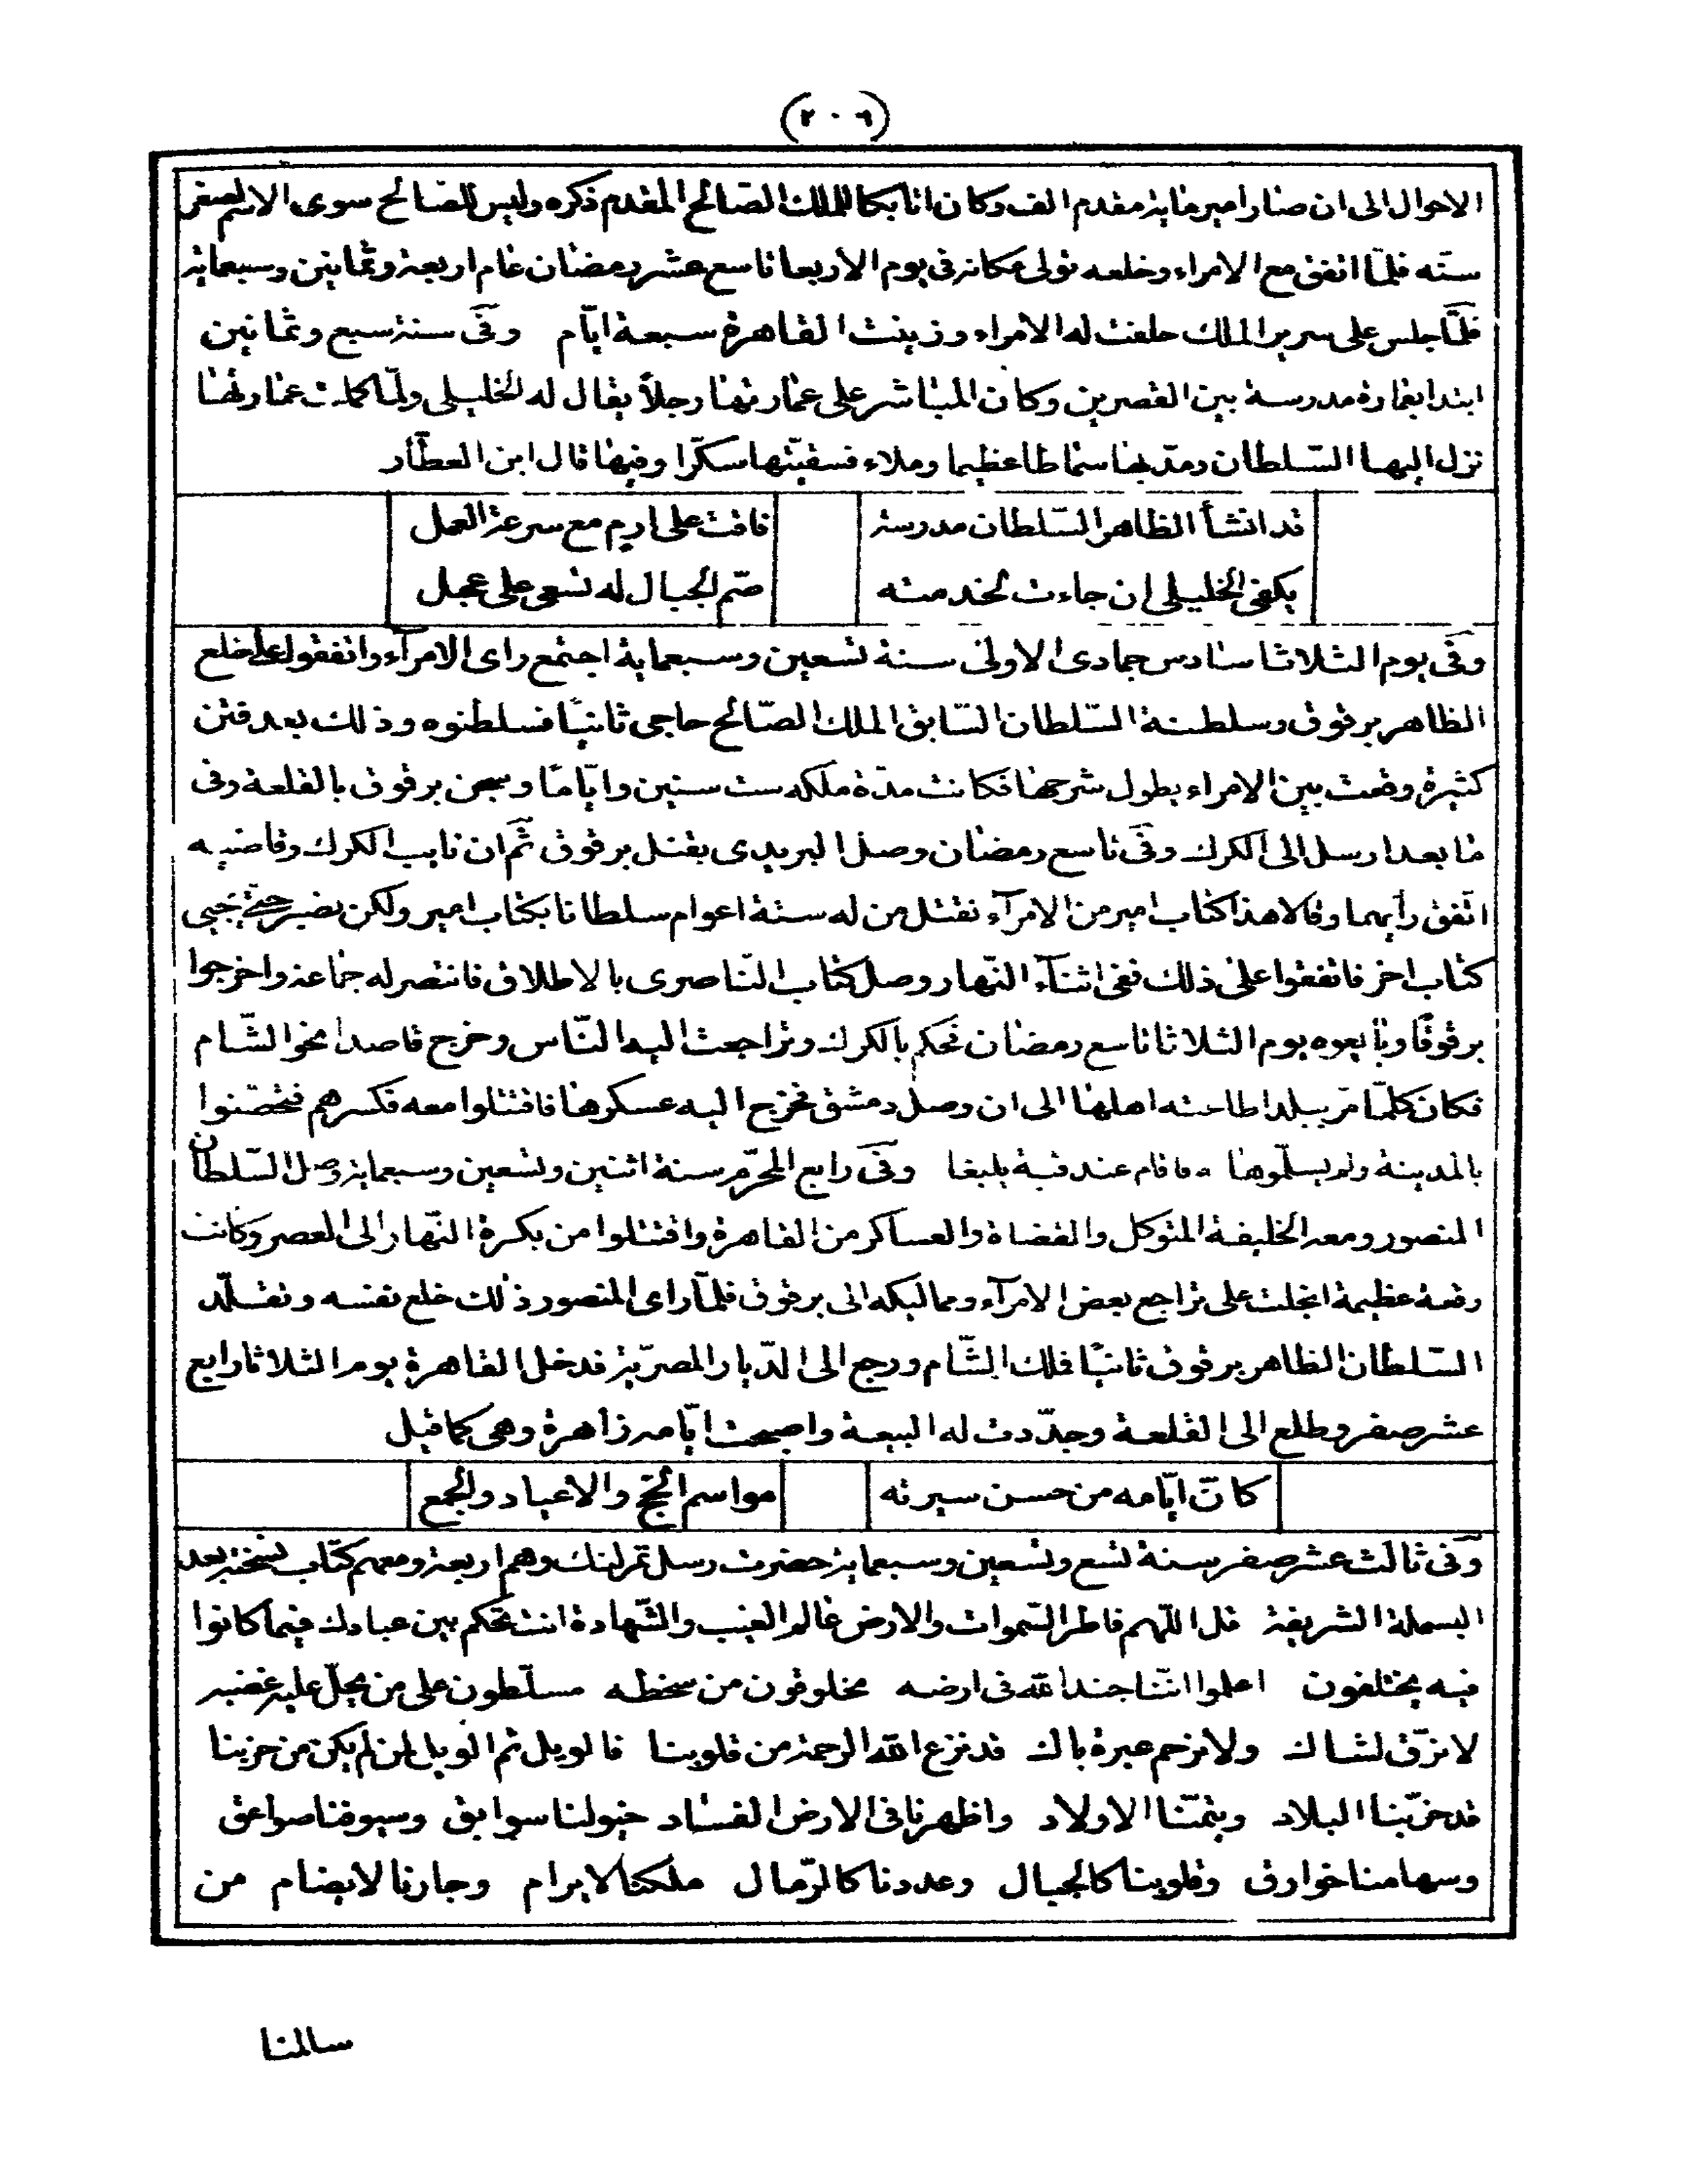 (٢٠٩)
الاحوال الى ان صار امير ماية مقدم الف وكان اتابكا للملك الصالح المقدم ذكره وليس للصالح سوى الاسم لصغر
سنّه فلمّا اتفق مع الامراء وخلعه تولى مكانه فى يوم الاربعا تاسع عشر رمضان عام اربعة وثمانين وسبعماية
فلمّا جلس على سرير الملك حلفت له الامراء وزينت القاهرة سبعة ايّام وفى سنة سبع وثمانين
ابتدا بعمارة مدرسة بين القصرين وكان المباشر على عمارتها رجلاً يقال له الخليلى ولمّا كملت عمارتها
نزل اليها السّلطان ومدّ بها سماطا عظيما وملاء فسقيّتها سكّرا وفيها قال ابن العطّار
قد انشأ الظاهر السّلطان مدرسة فاقت على ارم مع سرعة العمل
يكفى الخليلى ان جاءت لخدمته صمّ الجبال له تسعى على عجل
وفى يوم الثلاثا سادس جمادى الاولى سنة تسعين وسبعماية اجتمع راى الامرآء واتفقوا على خلع
الظاهر برقوق وسلطنة السّلطان السّابق الملك الصّالح حاجى ثانيًا فسلطنوه وذلك بعد فتن
كثيرة وقعت بين الامراء يطول شرحها فكانت مدّة ملكه ست سنين وايّامًا وسجن برقوق بالقلعة وفى
ما بعد ارسل الى الكرك وفى تاسع رمضان وصل البريدى بقتل برقوق ثمّ ان نايب الكرك وقاضيه
اتّفق رأيهما وقالا هذا كتاب امير من الامرآء نقتل من له ستة اعوام سلطانا بكتاب امير ولكن نصبر حتّى يجيى
كتاب اخر فاتفقوا على ذلك ففى اثنآء النّهار وصل كتاب النّاصرى بالاطلاق فانتصر له جماعة واخرجوا
برقوقًا وبايعوه يوم الثلاثا تاسع رمضان فحكم بالكرك وتراجعت اليه النّاس وخرج قاصدا نحو الشّام
فكان كلّما مرّ ببلد اطاعته اهلها الى ان وصل دمشق فخرج اليه عسكرها فاقتتلوا معه فكسرهم فتحصّنوا
بالمدينة ولم يسلّموها فاقام عند قبة يلبغا وفى رابع المحرّم سنة اثنين وتسعين وسبعماية وصل السّلطان
المنصور ومعه الخليفة المتوكل والقضاة والعساكر من القاهرة واقتتلوا من بكرة النّهار الى العصر وكانت
وقعة عظيمة انجلت على تراجع بعض الامرآء ومماليكه الى برقوق فلمّا راى المنصور ذلك خلع نفسه وتقلّد
السّلطان الظاهر برقوق ثانيًا فلك الشّام ورجع الى الدّيار المصريّة فدخل القاهرة يوم الثلاثا رابع
عشر صفر وطلع الى القلعة وجدّدت له البيعة واصبحت ايّامه زاهرة وهى كما قيل
كانّ ايّامه من حسن سيرته مواسم الحجّ والاعياد والجمع
وفى ثالث عشر صفر سنة تسع وتسعين وسبعماية حضرت رسل تمرلنك وهم اربعة ومعهم كتاب نسخته بعد
البسملة الشريفة قل اللّهم فاطر السّموات والارض عالم الغيب والشّهادة انت تحكم بين عبادك فيما كانوا
فيه يختلفون اعلموا انّنا جند الله فى ارضه مخلوقون من سخطه مسلّطون على من يحلّ عليه غضبه
لا نرقّ لشاك ولا نرحم عبرة باك قد نزع الله الرحمة من قلوبنا فالويل ثم الويل لمن لم يكن من حزبنا
قد خرّبنا البلاد ويتمّنا الاولاد واظهرنا فى الارض الفساد خيولنا سوابق وسيوفنا صواعق
وسهامنا خوارق وقلوبنا كالجبال وعددنا كالرّمال ملكنا لا يرام وجارنا لا يضام من
سالمنا